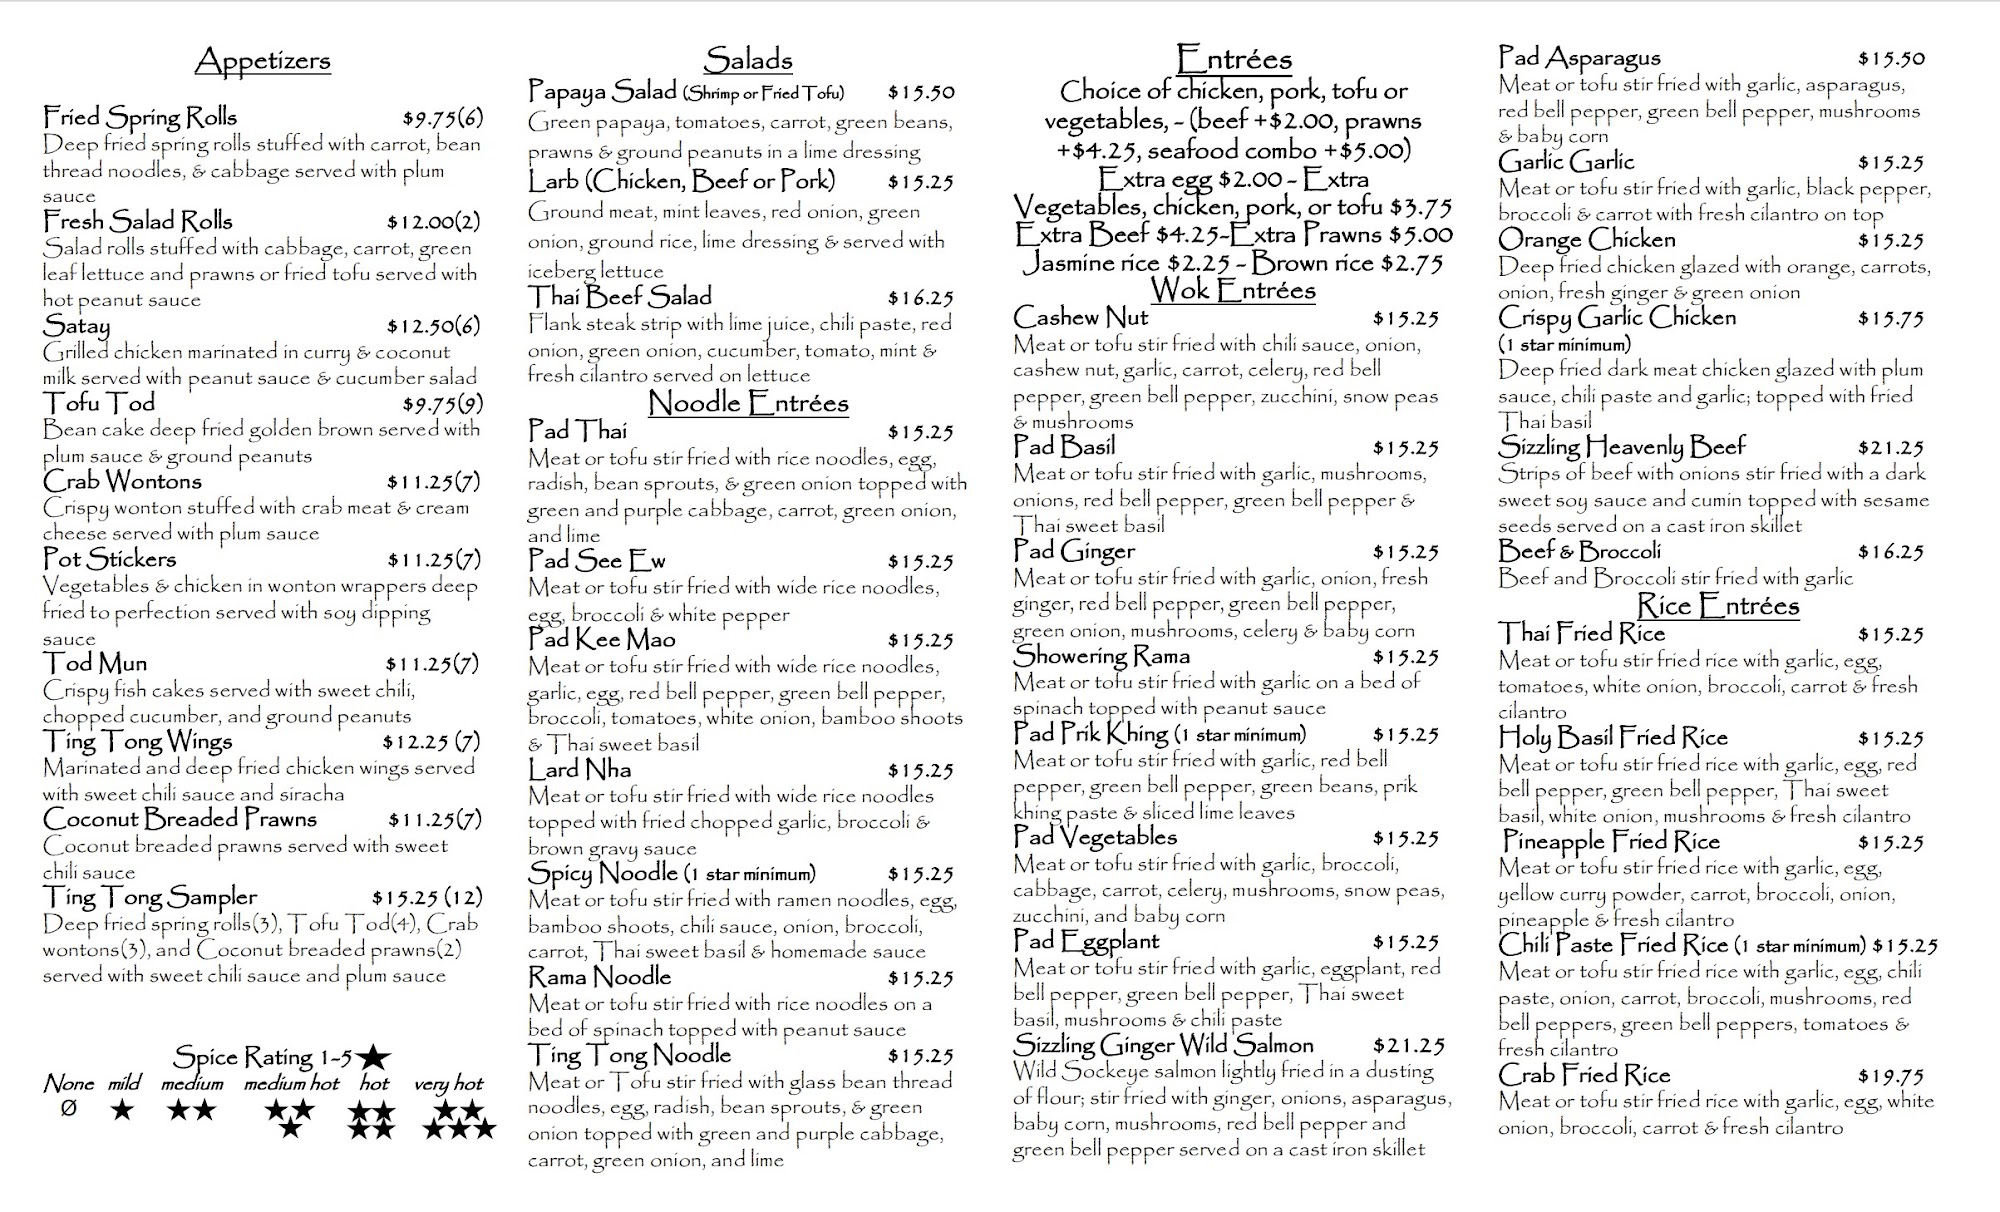 Appetizers
Fried Spring Rolls $9.75(6)
Deep fried spring rolls stuffed with carrot, bean
thread noodles, & cabbage served with plum
sauce
Fresh Salad Rolls $12.00(2)
Salad rolls stuffed with cabbage, carrot, green
leaf lettuce and prawns or fried tofu served with
hot peanut sauce
Satay $12.50(6)
Grilled chicken marinated in curry & coconut
milk served with peanut sauce & cucumber salad
Tofu Tod $9.75(9)
Bean cake deep fried golden brown served with
plum sauce & ground peanuts
Crab Wontons $11.25(7)
Crispy wonton stuffed with crab meat & cream
cheese served with plum sauce
Pot Stickers $11.25(7)
Vegetables & chicken in wonton wrappers deep
fried to perfection served with soy dipping
sauce
Tod Mun $11.25(7)
Crispy fish cakes served with sweet chili,
chopped cucumber, and ground peanuts
Ting Tong Wings $12.25 (7)
Marinated and deep fried chicken wings served
with sweet chili sauce and siracha
Coconut Breaded Prawns $11.25(7)
Coconut breaded prawns served with sweet
chili sauce
Ting Tong Sampler $15.25 (12)
Deep fried spring rolls(3), Tofu Tod(4), Crab
wontons(3), and Coconut breaded prawns(2)
served with sweet chili sauce and plum sauce
Spice Rating 1-5★
None mild medium medium hot hot very hot
Ø ★ ★★ ★★ ★★ ★★
★ ★★ ★★★
Salads
Papaya Salad (Shrimp or Fried Tofu) $15.50
Green papaya, tomatoes, carrot, green beans,
prawns & ground peanuts in a lime dressing
Larb (Chicken, Beef or Pork) $15.25
Ground meat, mint leaves, red onion, green
onion, ground rice, lime dressing & served with
iceberg lettuce
Thai Beef Salad $16.25
Flank steak strip with lime juice, chili paste, red
onion, green onion, cucumber, tomato, mint &
fresh cilantro served on lettuce
Noodle Entrées
Pad Thai $15.25
Meat or tofu stir fried with rice noodles, egg,
radish, bean sprouts, & green onion topped with
green and purple cabbage, carrot, green onion,
and lime
Pad See Ew $15.25
Meat or tofu stir fried with wide rice noodles,
egg, broccoli & white pepper
Pad Kee Mao $15.25
Meat or tofu stir fried with wide rice noodles,
garlic, egg, red bell pepper, green bell pepper,
broccoli, tomatoes, white onion, bamboo shoots
& Thai sweet basil
Lard Nha $15.25
Meat or tofu stir fried with wide rice noodles
topped with fried chopped garlic, broccoli &
brown gravy sauce
Spicy Noodle (1 star minimum) $15.25
Meat or tofu stir fried with ramen noodles, egg,
bamboo shoots, chili sauce, onion, broccoli,
carrot, Thai sweet basil & homemade sauce
Rama Noodle $15.25
Meat or tofu stir fried with rice noodles on a
bed of spinach topped with peanut sauce
Ting Tong Noodle $15.25
Meat or Tofu stir fried with glass bean thread
noodles, egg, radish, bean sprouts, & green
onion topped with green and purple cabbage,
carrot, green onion, and lime
Entrées
Choice of chicken, pork, tofu or
vegetables, - (beef +$2.00, prawns
+$4.25, seafood combo +$5.00)
Extra egg $2.00 - Extra
Vegetables, chicken, pork, or tofu $3.75
Extra Beef $4.25-Extra Prawns $5.00
Jasmine rice $2.25 - Brown rice $2.75
Wok Entrées
Cashew Nut $15.25
Meat or tofu stir fried with chili sauce, onion,
cashew nut, garlic, carrot, celery, red bell
pepper, green bell pepper, zucchini, snow peas
& mushrooms
Pad Basil $15.25
Meat or tofu stir fried with garlic, mushrooms,
onions, red bell pepper, green bell pepper &
Thai sweet basil
Pad Ginger $15.25
Meat or tofu stir fried with garlic, onion, fresh
ginger, red bell pepper, green bell pepper,
green onion, mushrooms, celery & baby corn
Showering Rama $15.25
Meat or tofu stir fried with garlic on a bed of
spinach topped with peanut sauce
Pad Prik Khing (1 star minimum) $15.25
Meat or tofu stir fried with garlic, red bell
pepper, green bell pepper, green beans, prik
khing paste & sliced lime leaves
Pad Vegetables $15.25
Meat or tofu stir fried with garlic, broccoli,
cabbage, carrot, celery, mushrooms, snow peas,
zucchini, and baby corn
Pad Eggplant $15.25
Meat or tofu stir fried with garlic, eggplant, red
bell pepper, green bell pepper, Thai sweet
basil, mushrooms & chili paste
Sizzling Ginger Wild Salmon $21.25
Wild Sockeye salmon lightly fried in a dusting
of flour; stir fried with ginger, onions, asparagus,
baby corn, mushrooms, red bell pepper and
green bell pepper served on a cast iron skillet
Pad Asparagus $15.50
Meat or tofu stir fried with garlic, asparagus,
red bell pepper, green bell pepper, mushrooms
& baby corn
Garlic Garlic $15.25
Meat or tofu stir fried with garlic, black pepper,
broccoli & carrot with fresh cilantro on top
Orange Chicken $15.25
Deep fried chicken glazed with orange, carrots,
onion, fresh ginger & green onion
Crispy Garlic Chicken $15.75
(1 star minimum)
Deep fried dark meat chicken glazed with plum
sauce, chili paste and garlic; topped with fried
Thai basil
Sizzling Heavenly Beef $21.25
Strips of beef with onions stir fried with a dark
sweet soy sauce and cumin topped with sesame
seeds served on a cast iron skillet
Beef & Broccoli $16.25
Beef and Broccoli stir fried with garlic
Rice Entrées
Thai Fried Rice $15.25
Meat or tofu stir fried rice with garlic, egg,
tomatoes, white onion, broccoli, carrot & fresh
cilantro
Holy Basil Fried Rice $15.25
Meat or tofu stir fried rice with garlic, egg, red
bell pepper, green bell pepper, Thai sweet
basil, white onion, mushrooms & fresh cilantro
Pineapple Fried Rice $15.25
Meat or tofu stir fried rice with garlic, egg,
yellow curry powder, carrot, broccoli, onion,
pineapple & fresh cilantro
Chili Paste Fried Rice (1 star minimum) $15.25
Meat or tofu stir fried rice with garlic, egg, chili
paste, onion, carrot, broccoli, mushrooms, red
bell peppers, green bell peppers, tomatoes &
fresh cilantro
Crab Fried Rice $19.75
Meat or tofu stir fried rice with garlic, egg, white
onion, broccoli, carrot & fresh cilantro